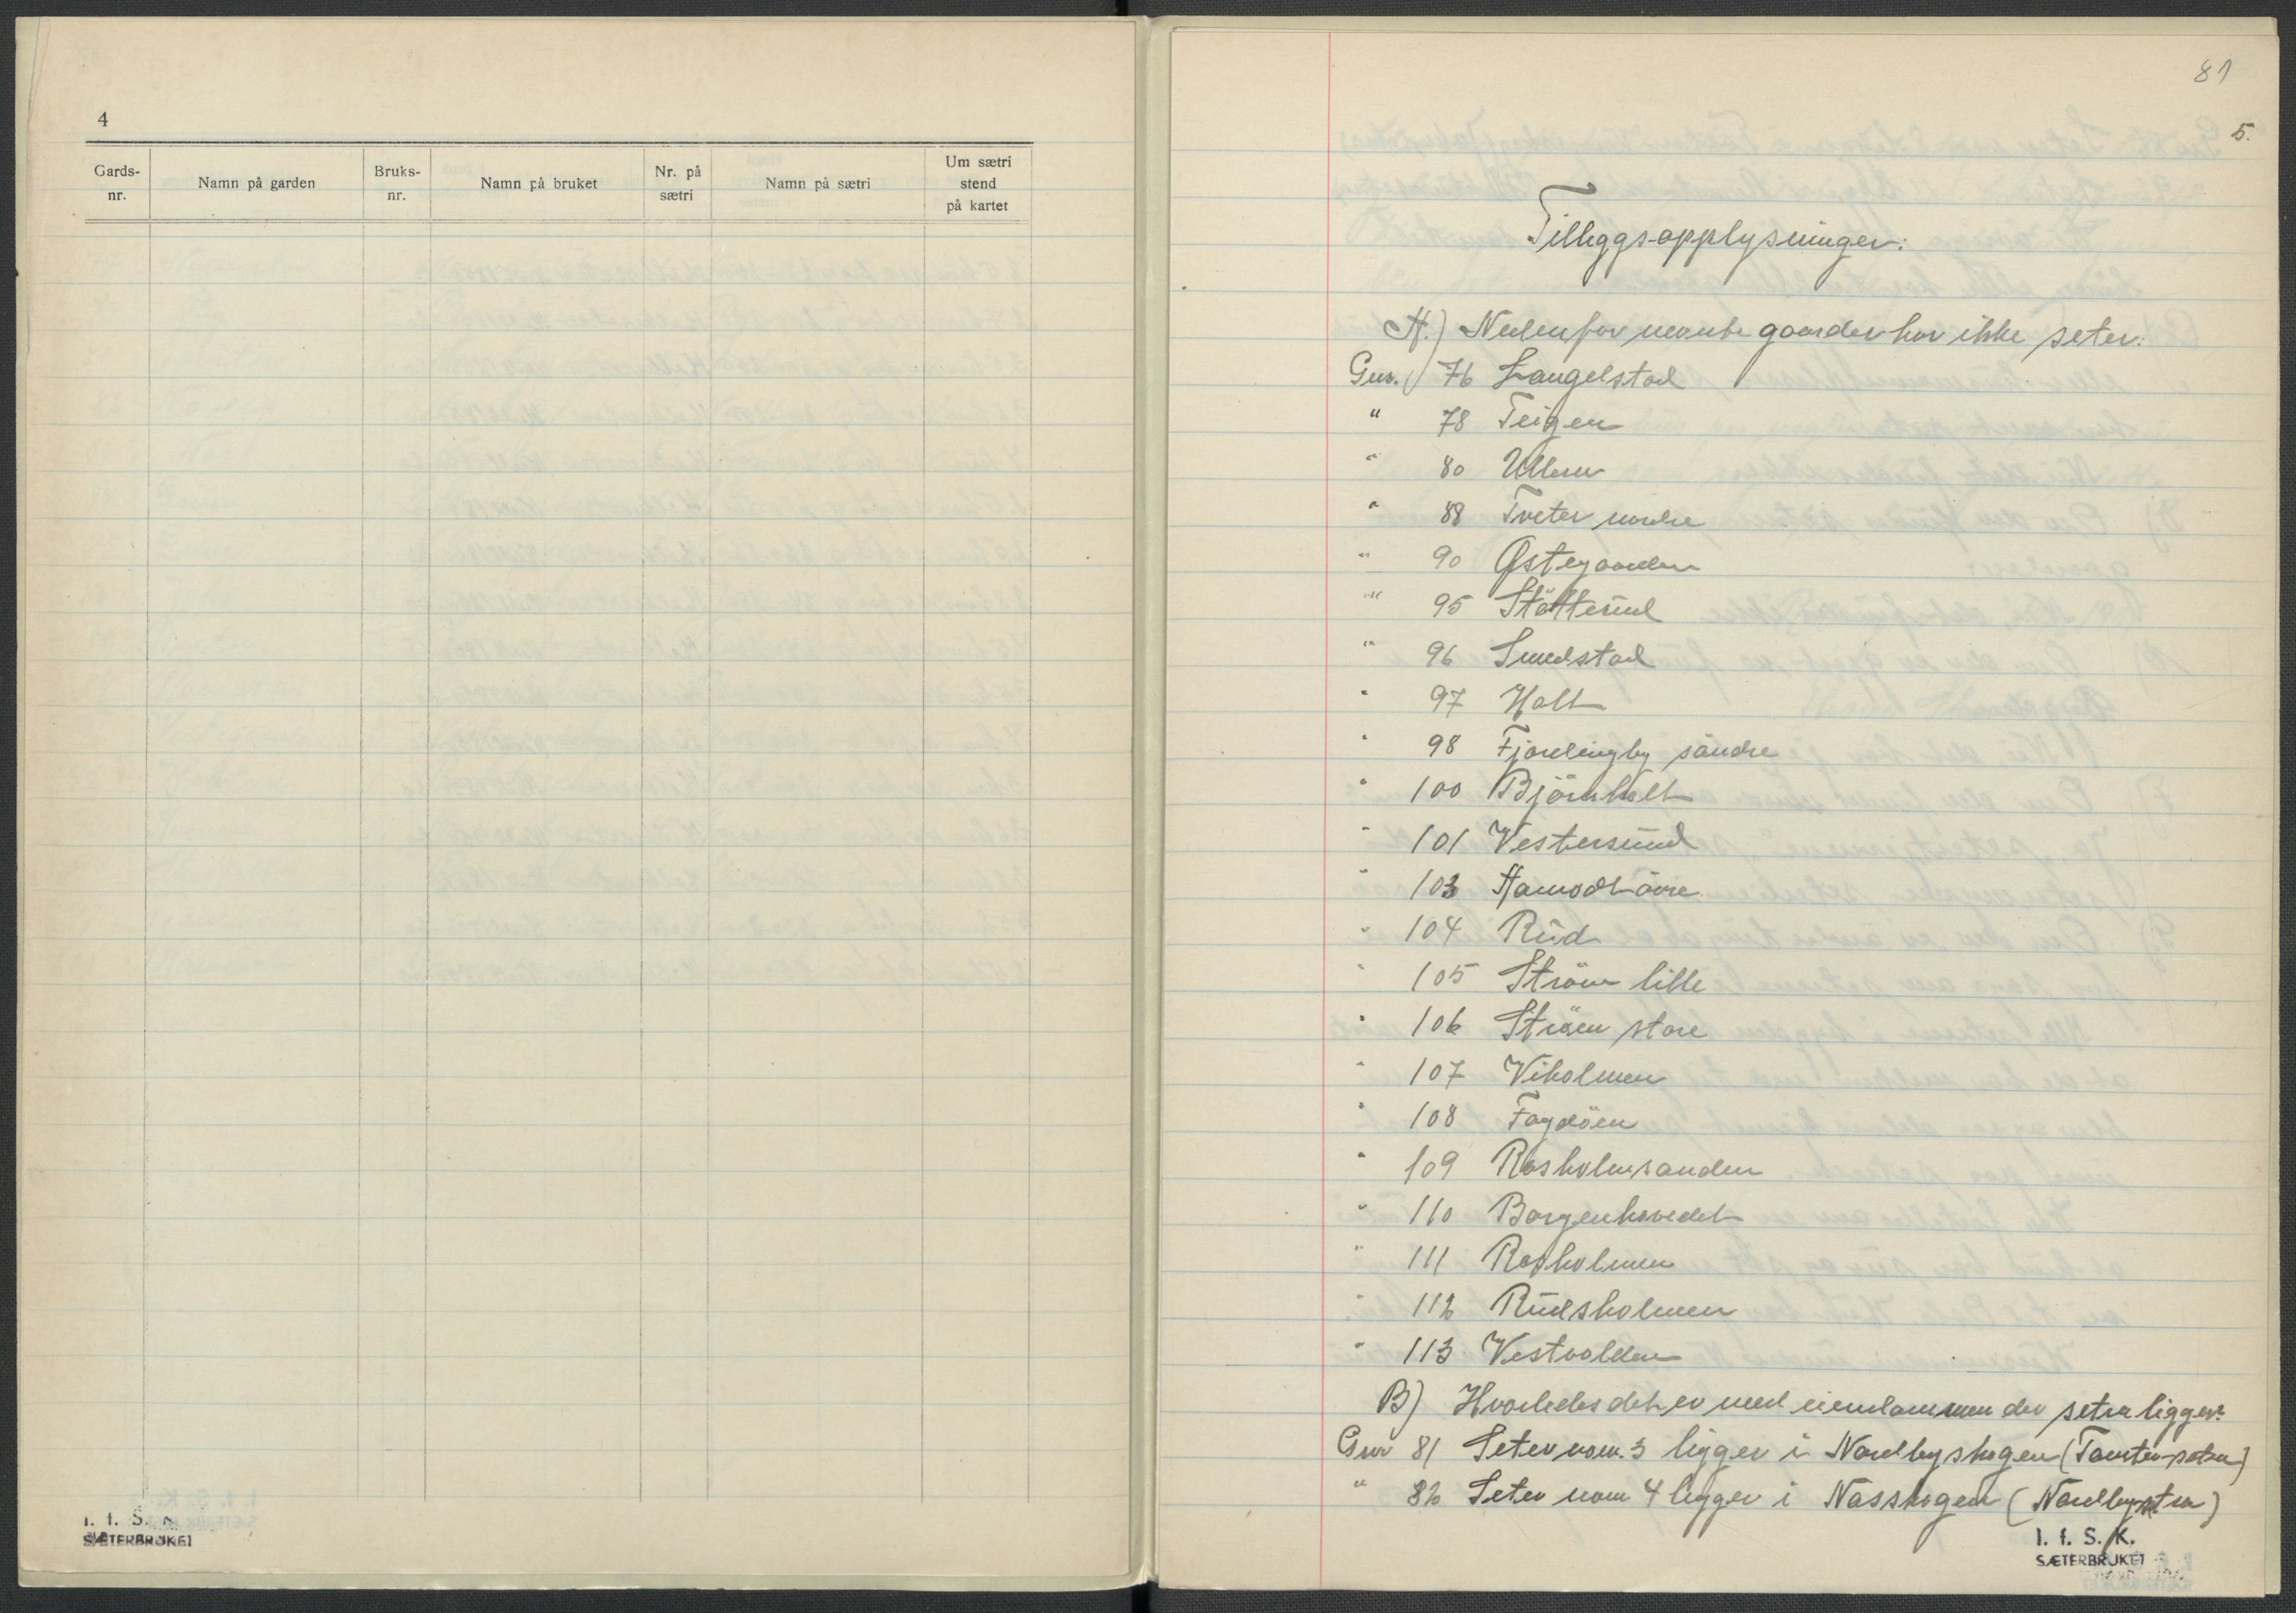 4
Gards-
nr.
Namn på garden
Bruks-
nr.
Namn på bruket
Nr. på
sætri
Namn på sætri
Um sætri
stend
på kartet
I. f. S. K.
SÆTERBRUKET
81
5.
Tilleggsopplysninger:
A.) Nedenfor nevnte gaarder har ikke seter:
Gnr. 76 Langelstad
" 78 Teigen
" 80 Ullern
" 88 Tveter nordre
" 90 Østegaarden
" 95 Støtterud
" 96 Smedstad
" 97 Holt
" 98 Fjordingby søndre
" 100 Bjørnholt
" 101 Vestersund
" 103 Hamodt øvre
" 104 Rud
" 105 Strøm lille
" 106 Strøm store
" 107 Viholmen
" 108 Fagdøen
" 109 Rosholmsanden
" 110 Borgenhovedet
" 111 Rosholmen
" 112 Rudsholmen
" 113 Vestvolden
B) Hvorledes det er med eiendommen der setra ligger.
Gnr 81 Seter nom. 3 ligger i Nordbyskogen (Tomter-setra)
" 82 Seter nom 4 ligger i Nasskogen (Nordbysetra)
I. f. S. K.
SÆTERBRUKET